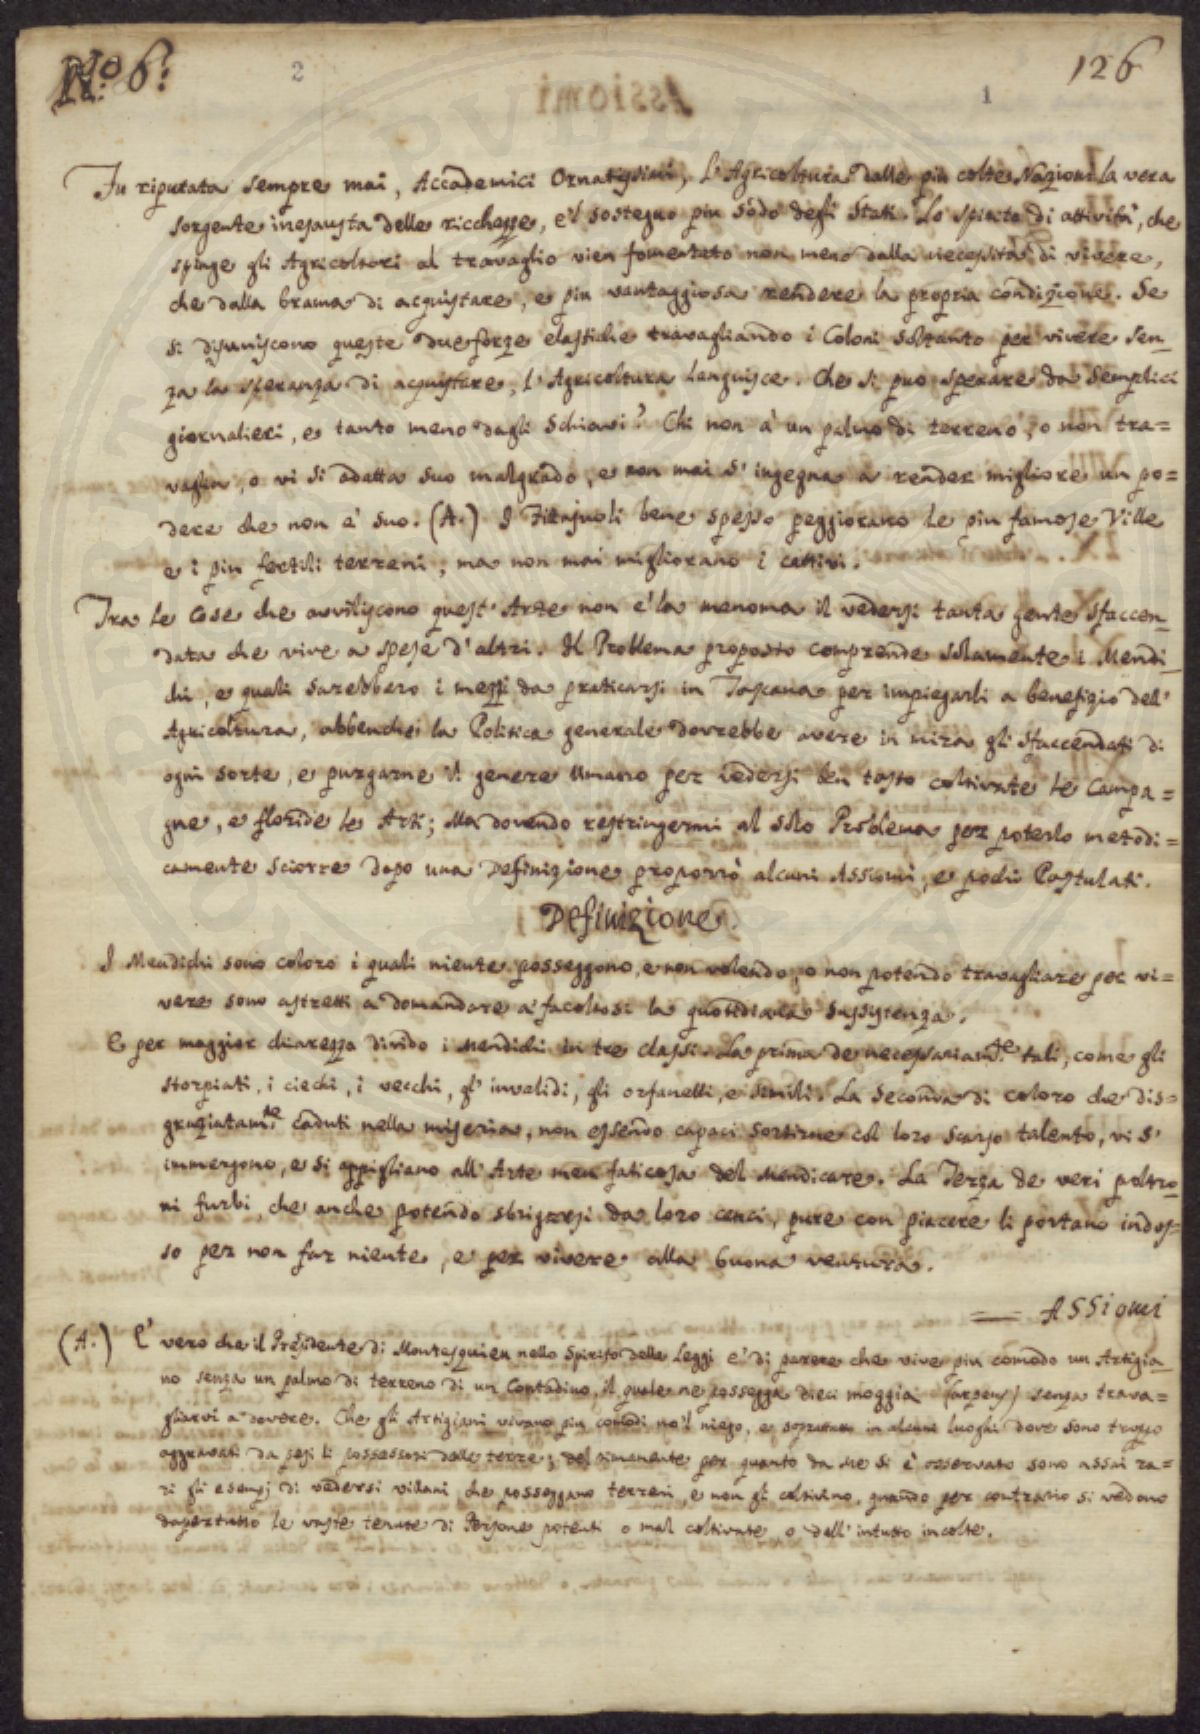 N.º 6.º
2
126
1
Fu riputata sempre mai, Accademici Ornatissimi, l'Agricoltura dalle più colte Nazioni la vera
sorgente inesausta delle ricchezze, e'l sostegno più sòdo degli Stati. Lo spirito di attività, che
spinge gli Agricoltori al travaglio vien fomentato non meno dalla necessità di vivere,
che dalla brama di acquistare, e più vantaggiosa rendere la propria condizione. Se
si disuniscono queste due forze elastiche travagliando i Coloni soltanto per vivere sen-
za la speranza di acquistare, l'Agricoltura languisce. Che si può sperare da semplici
giornalieri, e tanto meno dagli schiavi? Chi non à un palmo di terreno, o non tra=
vaglia, o vi si adatta suo malgrado, e non mai s'ingegna a render migliore un po=
dere che non è suo. (A.) I Fittajuoli bene spesso peggiorano le più famose Ville
e i più fertili terreni, ma non mai migliorano i cattivi.
Tra le cose che avviliscono quest'Arte non è la menoma il vedersi tanta gente sfaccen-
data che vive a spese d'altri. Il Problema proposto comprende solamente i Mendi-
chi, e quali sarebbero i mezzi da praticarsi in Toscana per impiegarli a benefizio dell'
Agricoltura, abbenche la Politica generale dovrebbe avere in mira gli sfaccendati di
ogni sorte, e purgarne il genere Umano per vedersi ben tosto coltivate le Campa=
gne, e floride le Arti; Ma dovendo restringermi al solo Problema per poterlo metodi=
camente sciorre dopo una Definizione proporrò alcuni Assiomi, e pochi Postulati.
Definizione.
I Mendichi sono coloro i quali niente posseggono, e non volendo, o non potendo travagliare per vi=
vere sono astretti a domandare a' facoltosi la quotidiana sussistenza.
E per maggior chiarezza divido i Mendichi in tre classi. La prima de necessariam.te tali, come gli
storpiati, i ciechi, i vecchi, gl'invalidi, gli orfanelli, e simili. La seconda di coloro che dis=
graziatam.te caduti nella miseria, non essendo capaci sortirne col loro scarso talento, vi s'
immergono, e si appigliano all'Arte men faticosa del Mendicare. La Terza de veri poltro-
ni furbi, che anche potendo sbrigarsi da loro cenci, pure con piacere li portano indos-
so per non far niente, e per vivere alla buona ventura.
= Assiomi
(A.) E' vero che il Presidente di Montesquieu nello Spirito delle Leggi è di parere che vive più comodo un Artigia-
no senza un palmo di terreno di un Contadino, il quale ne possegga dieci moggia (arpens) senza trava=
gliarvi a dovere. Che gli Artigiani vivano più comodi no'l niego, e sopratutto in alcuni luoghi dove sono troppo
aggravati da pesi li possessori delle terre; del rimanente per quanto da me si è osservato sono assai ra=
ri gli esempj di vedersi villani che posseggano terreni, e non gli coltivino, quando per contrario si vedono
dapertutto le vaste tenute di Persone potenti o mal coltivate, o dell'intutto incolte.